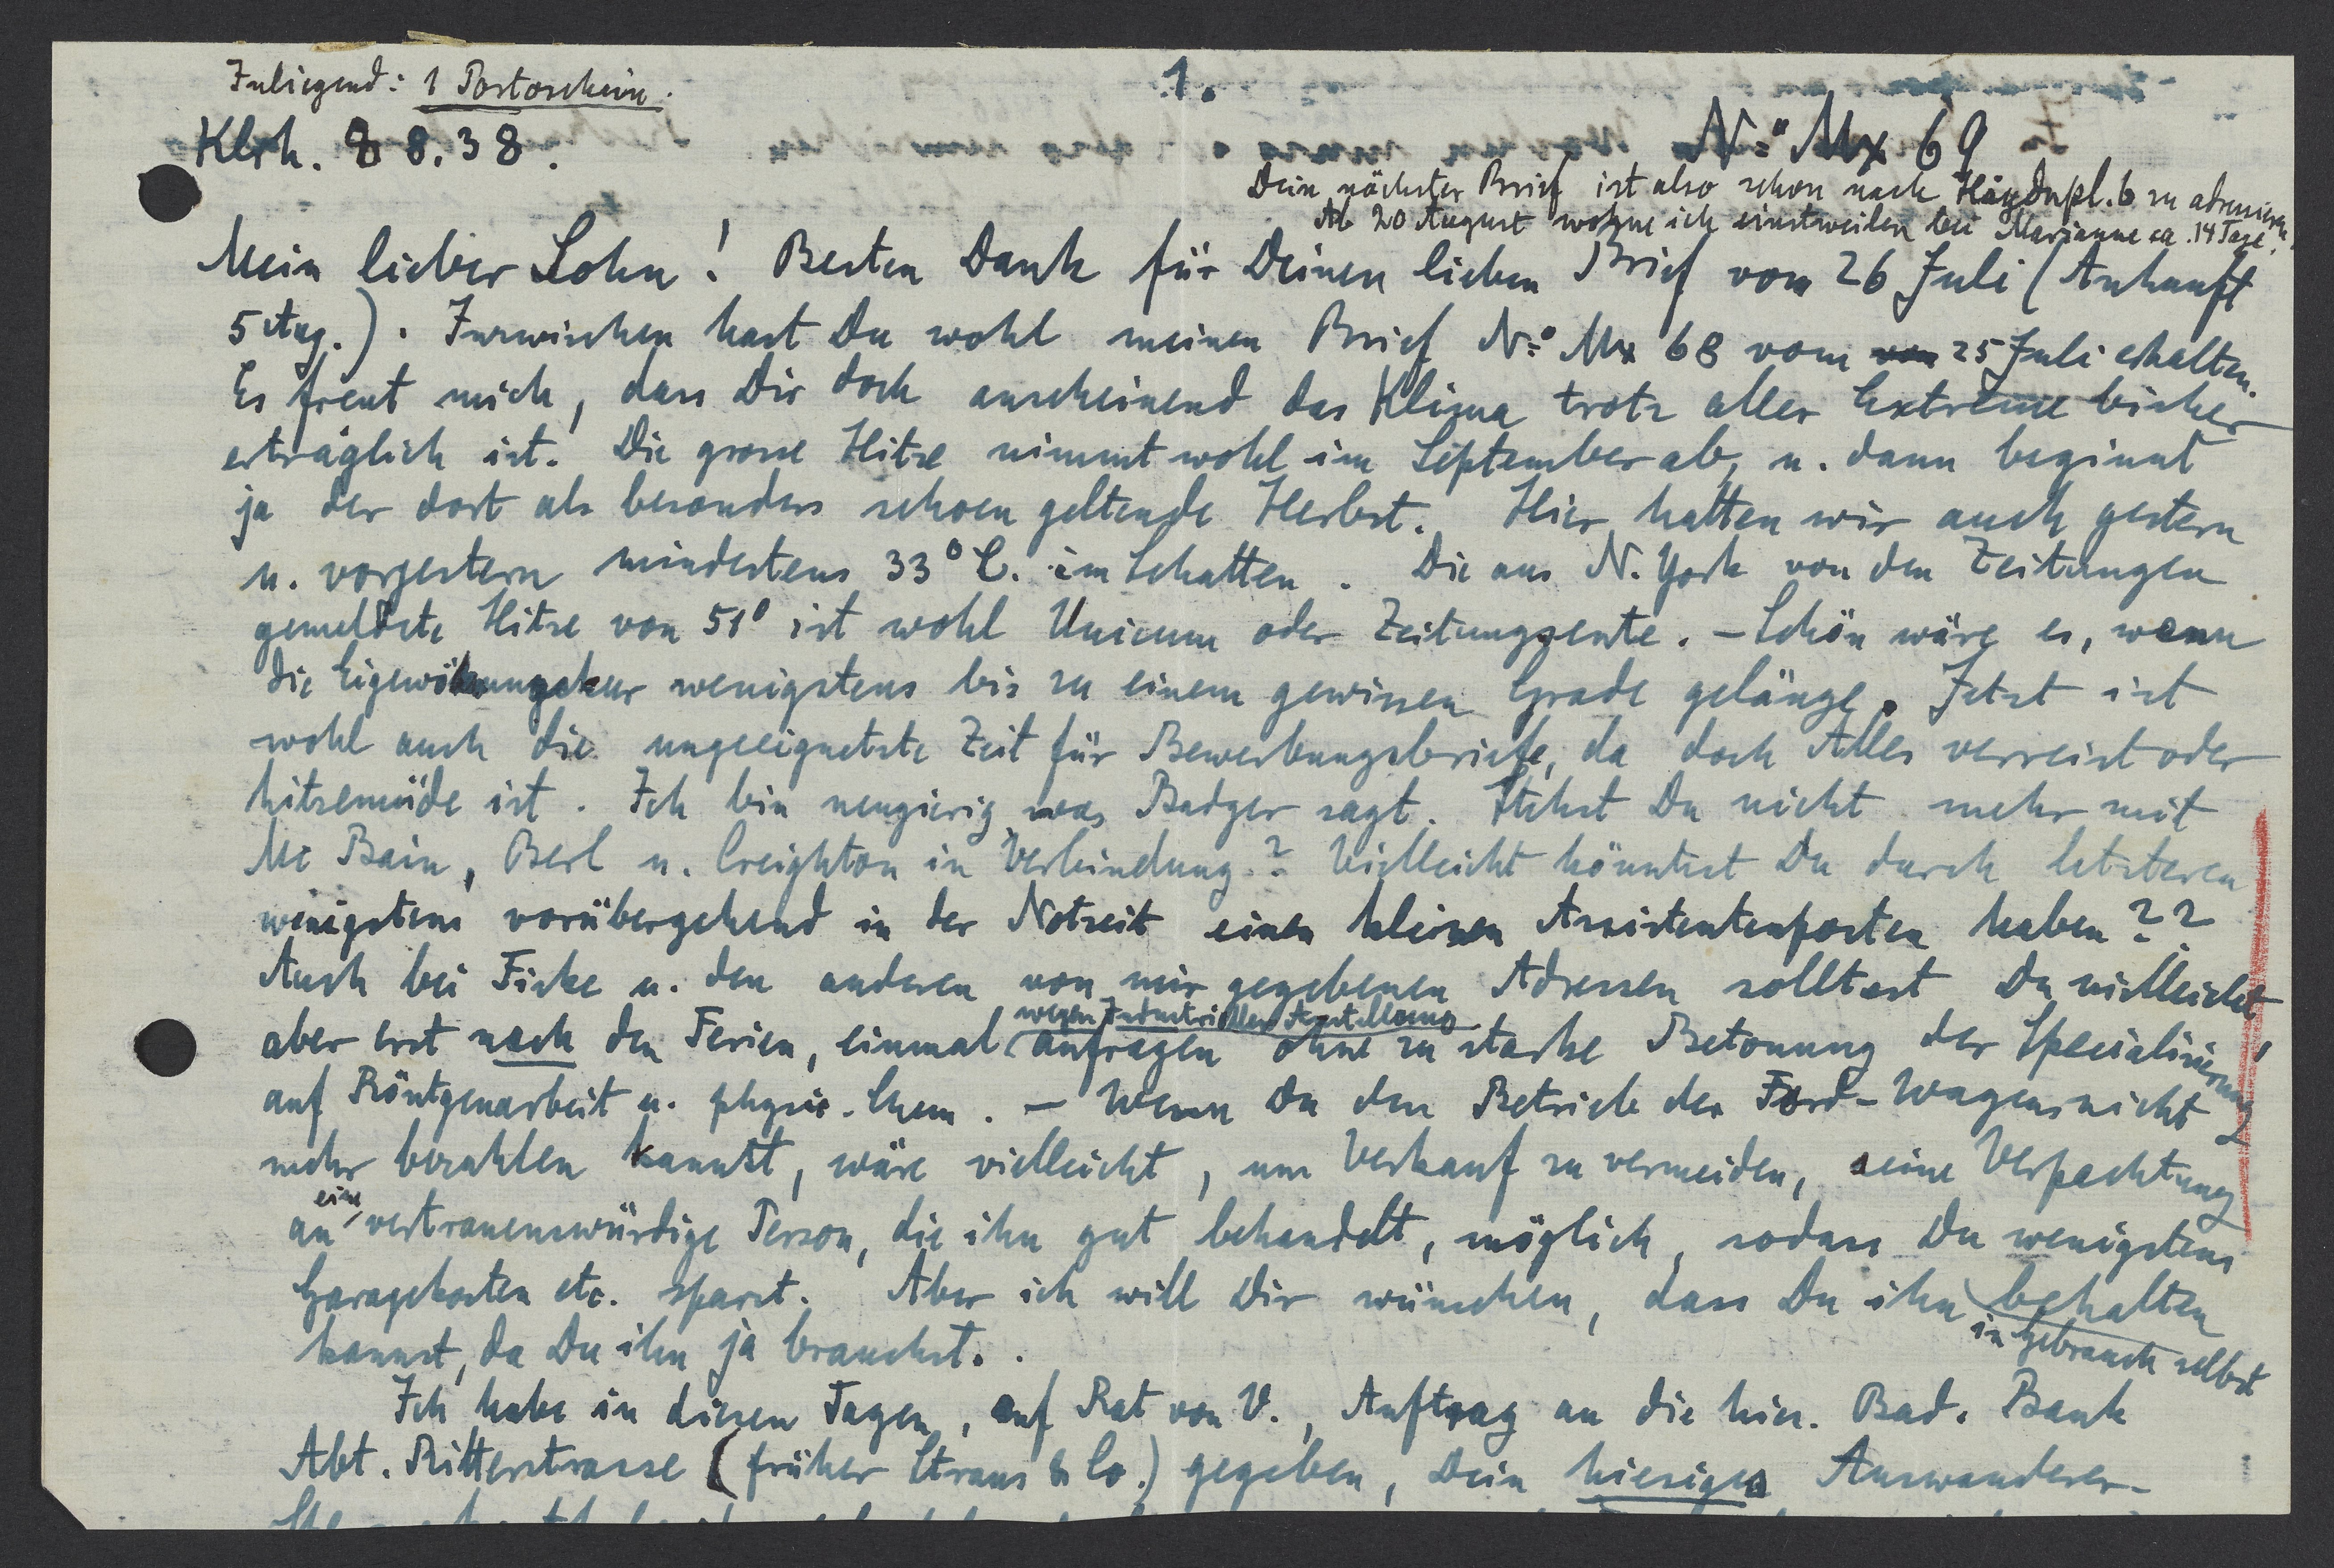 Inliegend: 1 Portoschein.
1.
Klrh. 8 8.38.
No Mx 69
Dein nächster Brief ist also schon nach Haydnpl. 6 zu adressieren.
Ab 20 August wohne ich einstweilen bei Marianne ca. 14 Tage.
Mein lieber Sohn! Besten Dank für Deinen lieben Brief vom 26 Juli (Ankunft
5 Aug.). Inzwischen hast Du wohl meinen Brief No Mx 68 vom von 25 Juli erhalten.
Es freut mich, dass Dir doch anscheinend das Klima trotz aller Extreme bisher
erträglich ist. Die grosse Hitze nimmt wohl im September ab, u. dann beginnt
ja der dort als besonders schoen geltende Herbst. Hier hatten wir auch gestern
u. vorgestern mindestens 33° C. im Schatten. Die aus N. York von den Zeitungen
gemeldete Hitze von 51° ist wohl Unicum oder Zeitungsente. – Schön wäre es, wenn
die Eigewöhnungskur wenigstens bis zu einem gewissen Grade gelänge. Jetzt ist
wohl auch die ungeeignetste Zeit für Bewerbungsbriefe, da doch Alles verreist oder
hitzemüde ist. Ich bin neugierig, was Badger sagt. Stehst Du nicht mehr mit
Mc Bain, Berl u. Creighton in Verbindung? Vielleicht könntest Du durch letzteren
wenigstens vorübergehend in der Notzeit einen kleinen Assistentenposten haben??
Auch bei Ficke u. den anderen von mir gegebenen Adressen solltest Du vielleicht,
aber erst nach den Ferien, einmal wegen Industrieller Anstellung anfragen ohne zu starke Betonung der Specialisierung
auf Röntgenarbeit u. physic. Chem. – Wenn Du den Betrieb des Ford-Wagens nicht
mehr bezahlen kannst, wäre vielleicht, um Verkauf zu vermeiden, seine Verpachtung
an eine vertrauenswürdige Person, die ihn gut behandelt, möglich, sodass Du wenigstens
Garagekosten etc. sparst. Aber ich will Dir wünschen, dass Du ihn behalten
in Gebrauch selbst
kannst, da Du ihn ja brauchst.
Ich habe in diesen Tagen, auf Rat von V., Auftrag an die hies. Bad. Bank
Abt. Ritterstrasse (früher Straus & Co.) gegeben, Dein hiesiges Auswanderer-